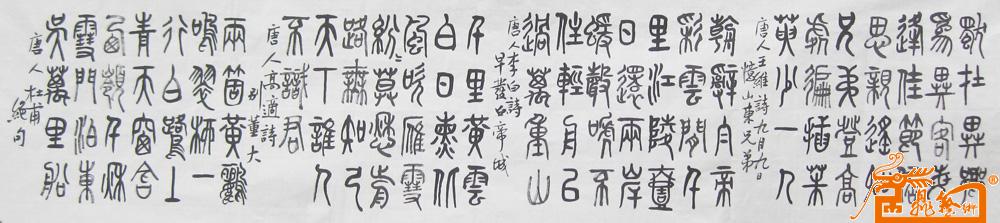 獨在異鄉
為異客每
逢佳節倍
思親遙知
兄弟登高
處遍插茱
萸少一人
唐人王維詩九月九日
憶山東兄弟
朝辭白帝
彩雲間千
里江陵壹
日還兩岸
猿聲啼不
住輕舟已
過萬重山
唐人李白詩
早發白帝城
千里黃雲
白日曛北
風吹雁雪
紛紛莫愁前
路無知己
天下誰人
不識君
唐人高適詩
別董大
兩箇黃鸝
鳴翠柳一
行白鷺上
青天窗含
西嶺千秋
雪門泊東
吳萬里船
唐人杜甫
絕句